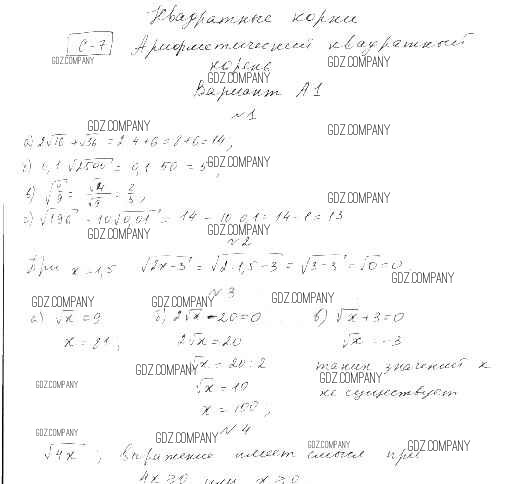 Квадратные корни
С-7 Арифметический квадратный
GDZ.COMPANY GDZ.COMPANY
корень
GDZ.COMPANY
Вариант А1
№1
GDZ.COMPANY GDZ.COMPANY
а) 2√16 + √36 = 2·4+6 = 8+6 = 14;
б) 0,1·√2500 = 0,1·50 = 5; GDZ.COMPANY
в) √4/9 = √4/√9 = 2/3;
GDZ.COMPANY
г) √196 - 10√0,01 = 14 - 10·0,1 = 14-1 = 13
GDZ.COMPANY GDZ.COMPANY
№2
При x=1,5 √2x-3 = √2·1,5-3 = √3-3 = √0 = 0
№3
GDZ.COMPANY GDZ.COMPANY GDZ.COMPANY
а) √x = 9 б) 2√x - 20 = 0 в) √x + 3 = 0
x = 81; 2√x = 20 √x = -3
√x = 20:2 таких значений x
GDZ.COMPANY GDZ.COMPANY GDZ.COMPANY
√x = 10 не существует
x = 100;
№4
GDZ.COMPANY GDZ.COMPANY GDZ.COMPANY GDZ.COMPANY
√4x; Выражение имеет смысл при
4x ≥ 0 или x ≥ 0